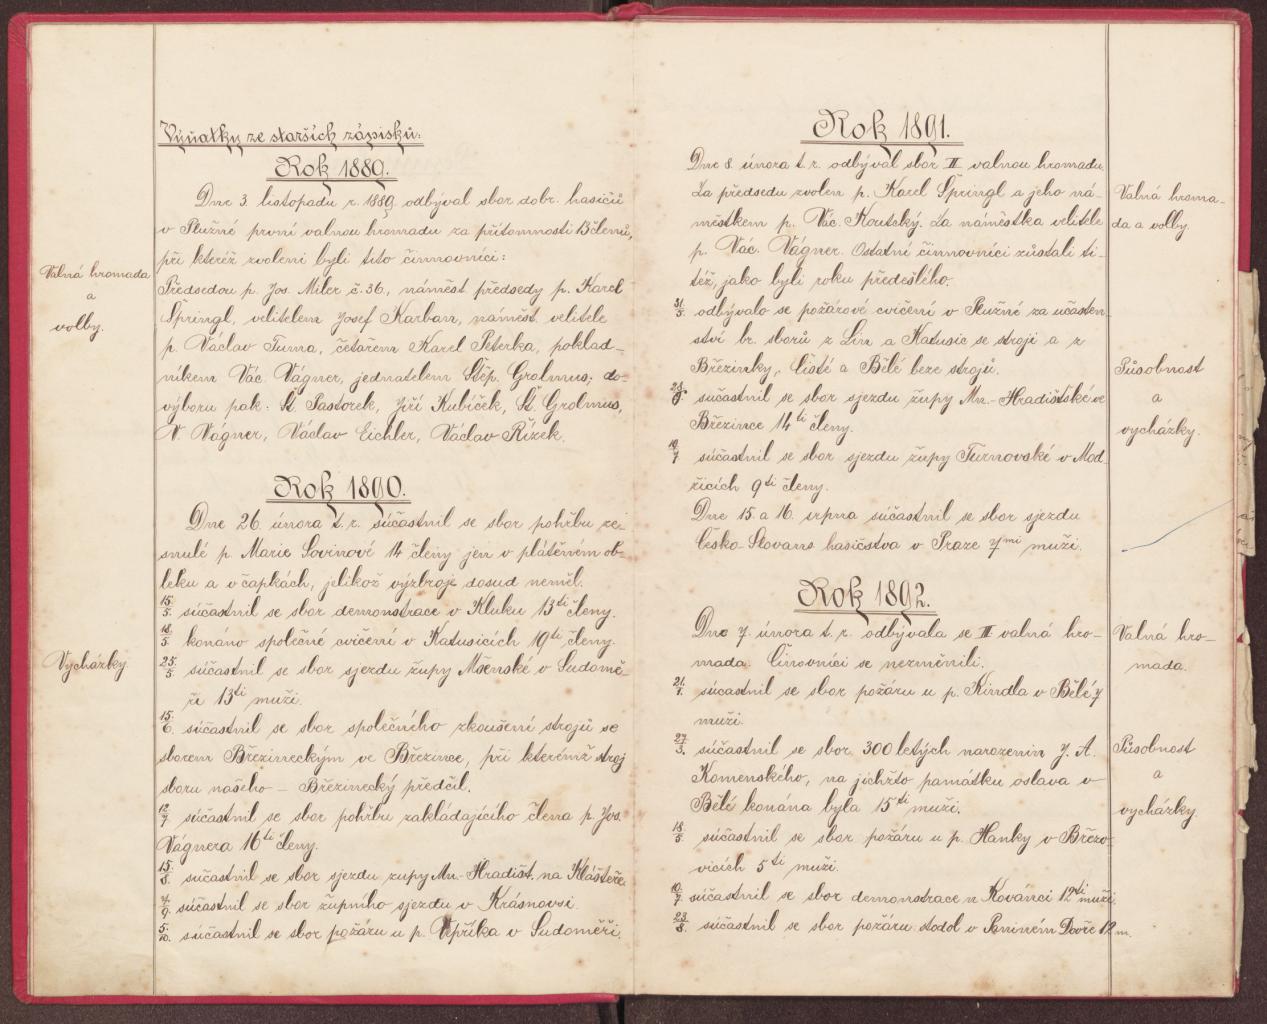 Výňatky ze starších zápisků:
Rok 1889.
Dne 3. listopadu r. 1889 odbýval sbor dobr. hasičů
v Plužné první valnou hromadu za přítomnosti 13 členů,
při kteréž zvoleni byli tito činnovníci:
Valná hromada
a
volby.
Předsedou p. Jos. Miler č. 36., náměst. předsedy p. Karel
Špringl, velitelem Josef Karban, náměst. velitele
p. Václav Tuma, četařem Karel Peterka, poklad-
níkem Vác. Vágner, jednatelem Štěp. Grolmus; do
výboru pak: Št. Pastorek, Jiří Kubíček, Št. Grolmus,
V. Vágner, Václav Eichler, Václav Řízek.
Rok 1890.
Dne 26. února t. r. súčastnil se sbor pohřbu ze-
snulé p. Marie Sovinové 14 členy jen v plátěném ob-
leku a v čapkách, jelikož výzbroje dosud neměl.
15./5. súčastnil se sbor demonstrace v Kluku 13ti členy.
18./5. konáno společné cvičení v Katusicích 19ti členy.
Vycházky.
25./5. súčastnil se sbor sjezdu župy Mšenské v Sudomě-
ři 13ti muži.
15./6. súčastnil se sbor společného zkoušení strojů se
sborem Březineckým ve Březince, při kterémž stroj
sboru našeho – Březinecký předčil.
12./7. súčastnil se sbor pohřbu zakládajícího člena p. Jos.
Vágnera 16ti členy.
15./8. súčastnil se sbor sjezdu župy Mn.-Hradišt. na Klášteře.
7./9. súčastnil se sbor župního sjezdu v Krásnovsi.
5./10. súčastnil se sbor požáru u p. Vepříka v Sudoměři.
Rok 1891.
Dne 8. února t. r. odbýval sbor II valnou hromadu.
Za předsedu zvolen p. Karel Špringl a jeho ná-
městkem p. Vác. Koutský. Za náměstka velitele
p. Vác. Vágner. Ostatní činnovníci zůstali ti-
též, jako byli roku předešlého.
Valná hroma-
da a volby.
31./5. odbývalo se požárové cvičení v Plužné za účasten-
ství br. sborů z Lin a Katusic se stroji a z
Březinky, Císté a Bělé beze strojů.
28./6. súčastnil se sbor sjezdu župy Mn.-Hradišťské ve
Březince 14ti členy.
Působnost
a
vycházky.
19./7. súčastnil se sbor sjezdu župy Turnovské v Mod-
řicích 9ti členy.
Dne 15. a 16. srpna súčastnil se sbor sjezdu
Česko-Slovans. hasičstva v Praze 7mi muži.
Rok 1892.
Dne 7. února t. r. odbývala se III valná hro-
mada. Činovníci se nezměnili.
Valná hro-
mada.
21./1. súčastnil se sbor požáru u p. Kindla v Bělé 7
muži.
27./3. súčastnil se sbor 300 letých narozenin J. A.
Komenského, na jichžto památku oslava v
Bělé konána byla 15ti muži.
Působnost
a
vycházky.
18./5. súčastnil se sbor požáru u p. Hanky v Březo-
vicích 5ti muži.
10./7. súčastnil se sbor demonstrace v Kovánci 12ti muži.
23./8. súčastnil se sbor požáru stodol v Paniném Dvoře 12 m.